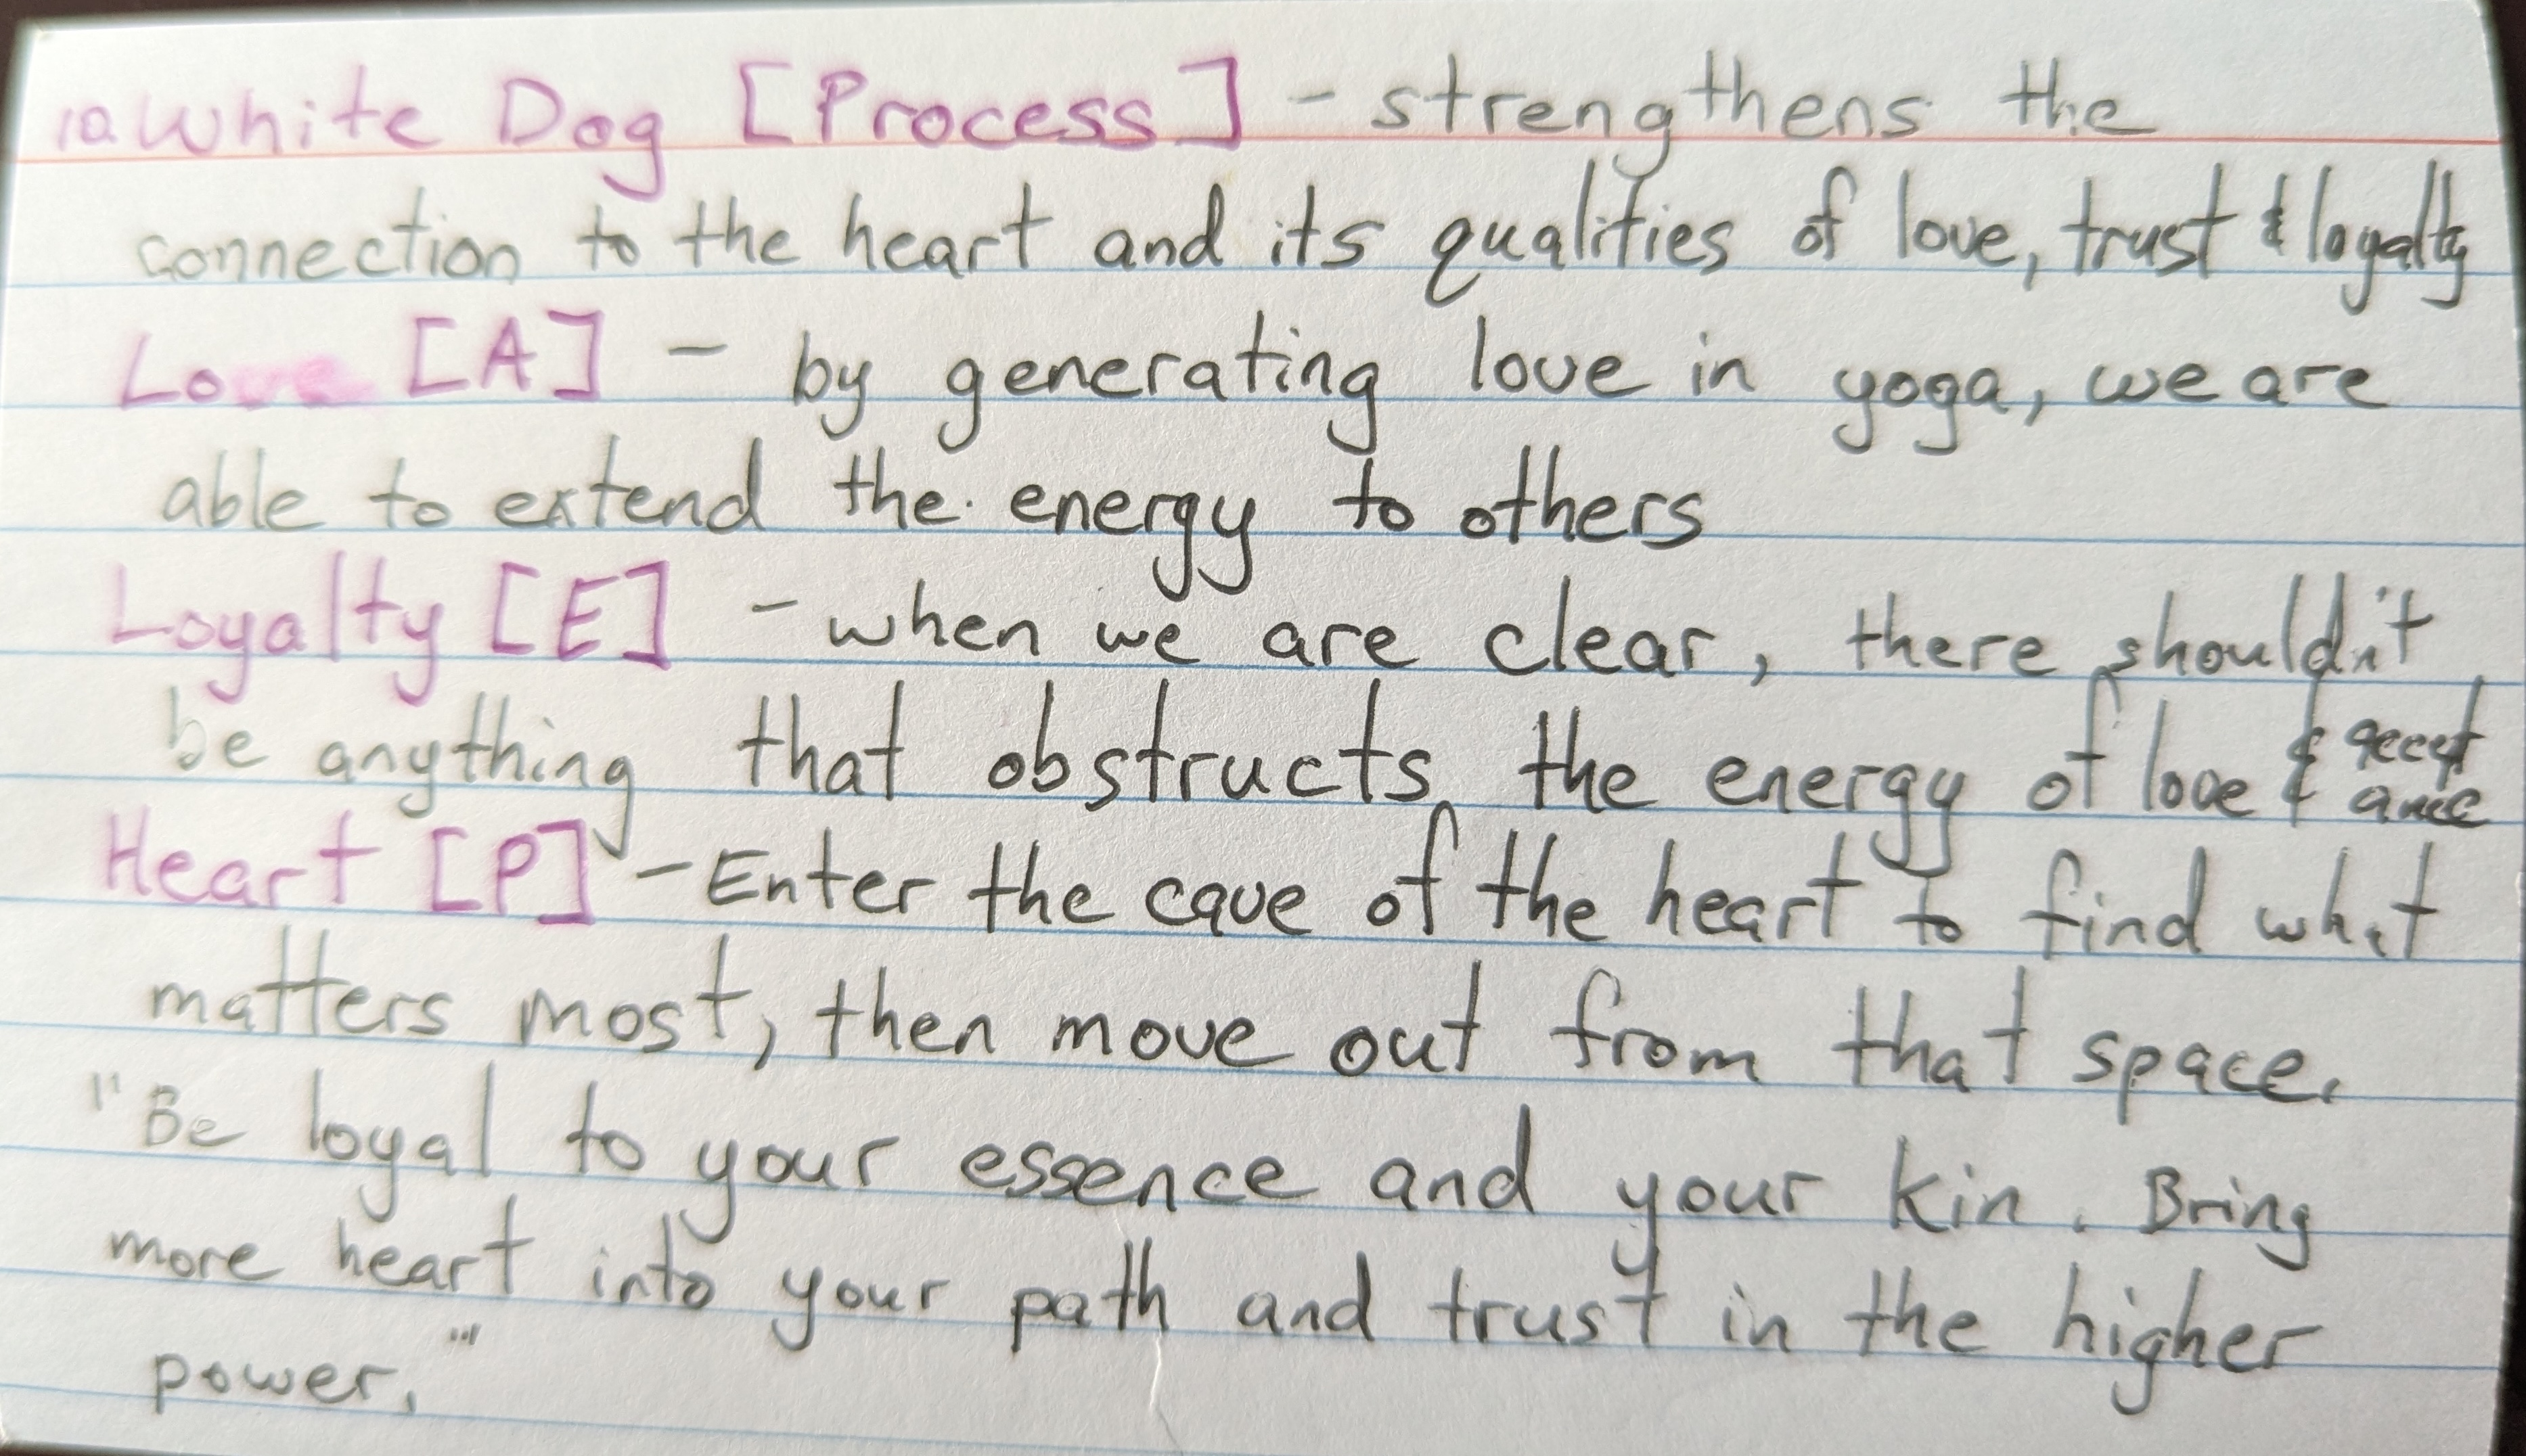 10. White Dog [Process] - strengthens the
connection to the heart and its qualities of love, trust & loyalty
Love [A] - by generating love in yoga, we are
able to extend the energy to others
Loyalty [E] - when we are clear, there shouldn't
be anything that obstructs the energy of love & acceptance
Heart [P] - Enter the cave of the heart to find what
matters most, then move out from that space.
"Be loyal to your essence and your kin. Bring
more heart into your path and trust in the higher
power."